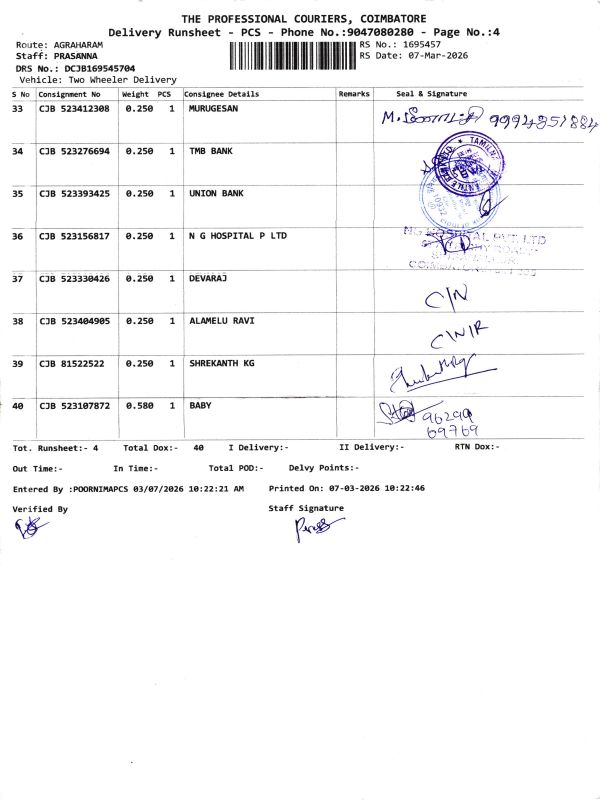 THE PROFESSIONAL COURIERS, COIMBATORE
Delivery Runsheet - PCS - Phone No.:9047080280 - Page No.:4
Route: AGRAHARAM RS No.: 1695457
Staff: PRASANNA RS Date: 07-Mar-2026
DRS No.: DCJB169545704
Vehicle: Two Wheeler Delivery
S No Consignment No Weight PCS Consignee Details Remarks Seal & Signature
33 CJB 523412308 0.250 1 MURUGESAN M.
34 CJB 523276694 0.250 1 TMB BANK
35 CJB 523393425 0.250 1 UNION BANK
36 CJB 523156817 0.250 1 N G HOSPITAL P LTD
NG HOSPITAL PVT LTD
37 CJB 523330426 0.250 1 DEVARAJ
C/N
38 CJB 523404905 0.250 1 ALAMELU RAVI
C/N/R
39 CJB 81522522 0.250 1 SHREKANTH KG
40 CJB 523107872 0.580 1 BABY
96299
69769
Tot. Runsheet:- 4 Total Dox:- 40 I Delivery:- II Delivery:- RTN Dox:-
Out Time:- In Time:- Total POD:- Delvy Points:-
Entered By :POORNIMAPCS 03/07/2026 10:22:21 AM Printed On: 07-03-2026 10:22:46
Verified By Staff Signature